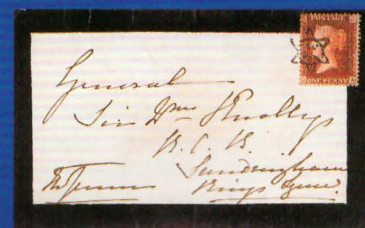 POSTAGE
ONE PENNY
General
Sir Wm Knollys
K. C. B.
Sandringham
Kings Lynn